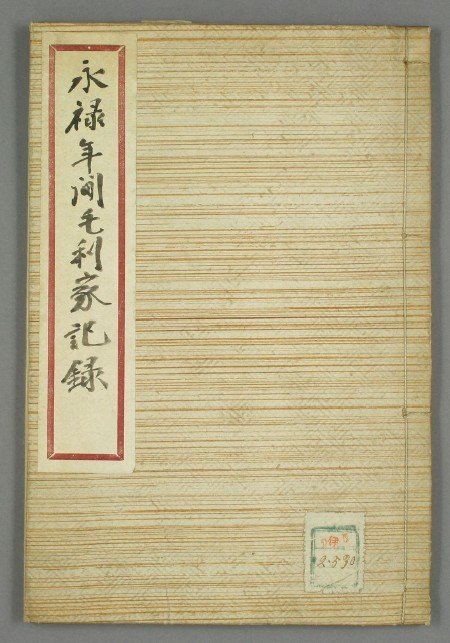 永禄年間毛利家記録
伊
2-590